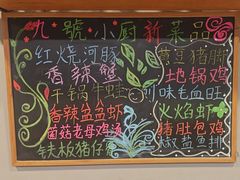 九號小厨新菜品
红烧河豚
香辣蟹
干锅牛蛙
香辣盆盆虾
菌菇老母鸡汤
铁板猪仔
豆猪脚
地锅鸡
味毛血旺
火焰虾
猪肚包鸡
椒盐鱼排